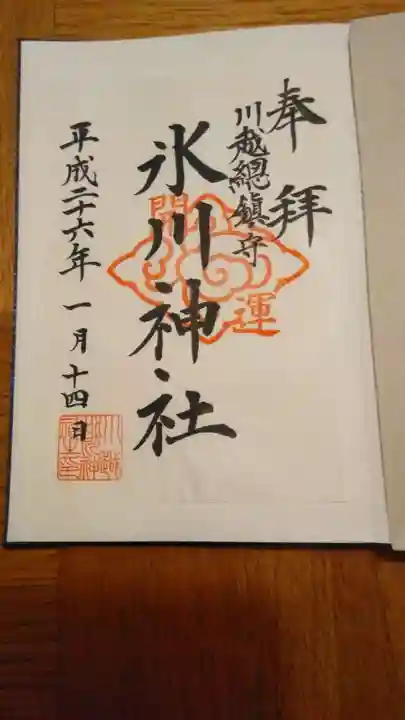 奉拝
川越總鎮守
氷川神社
開運
平成二十六年一月十四日